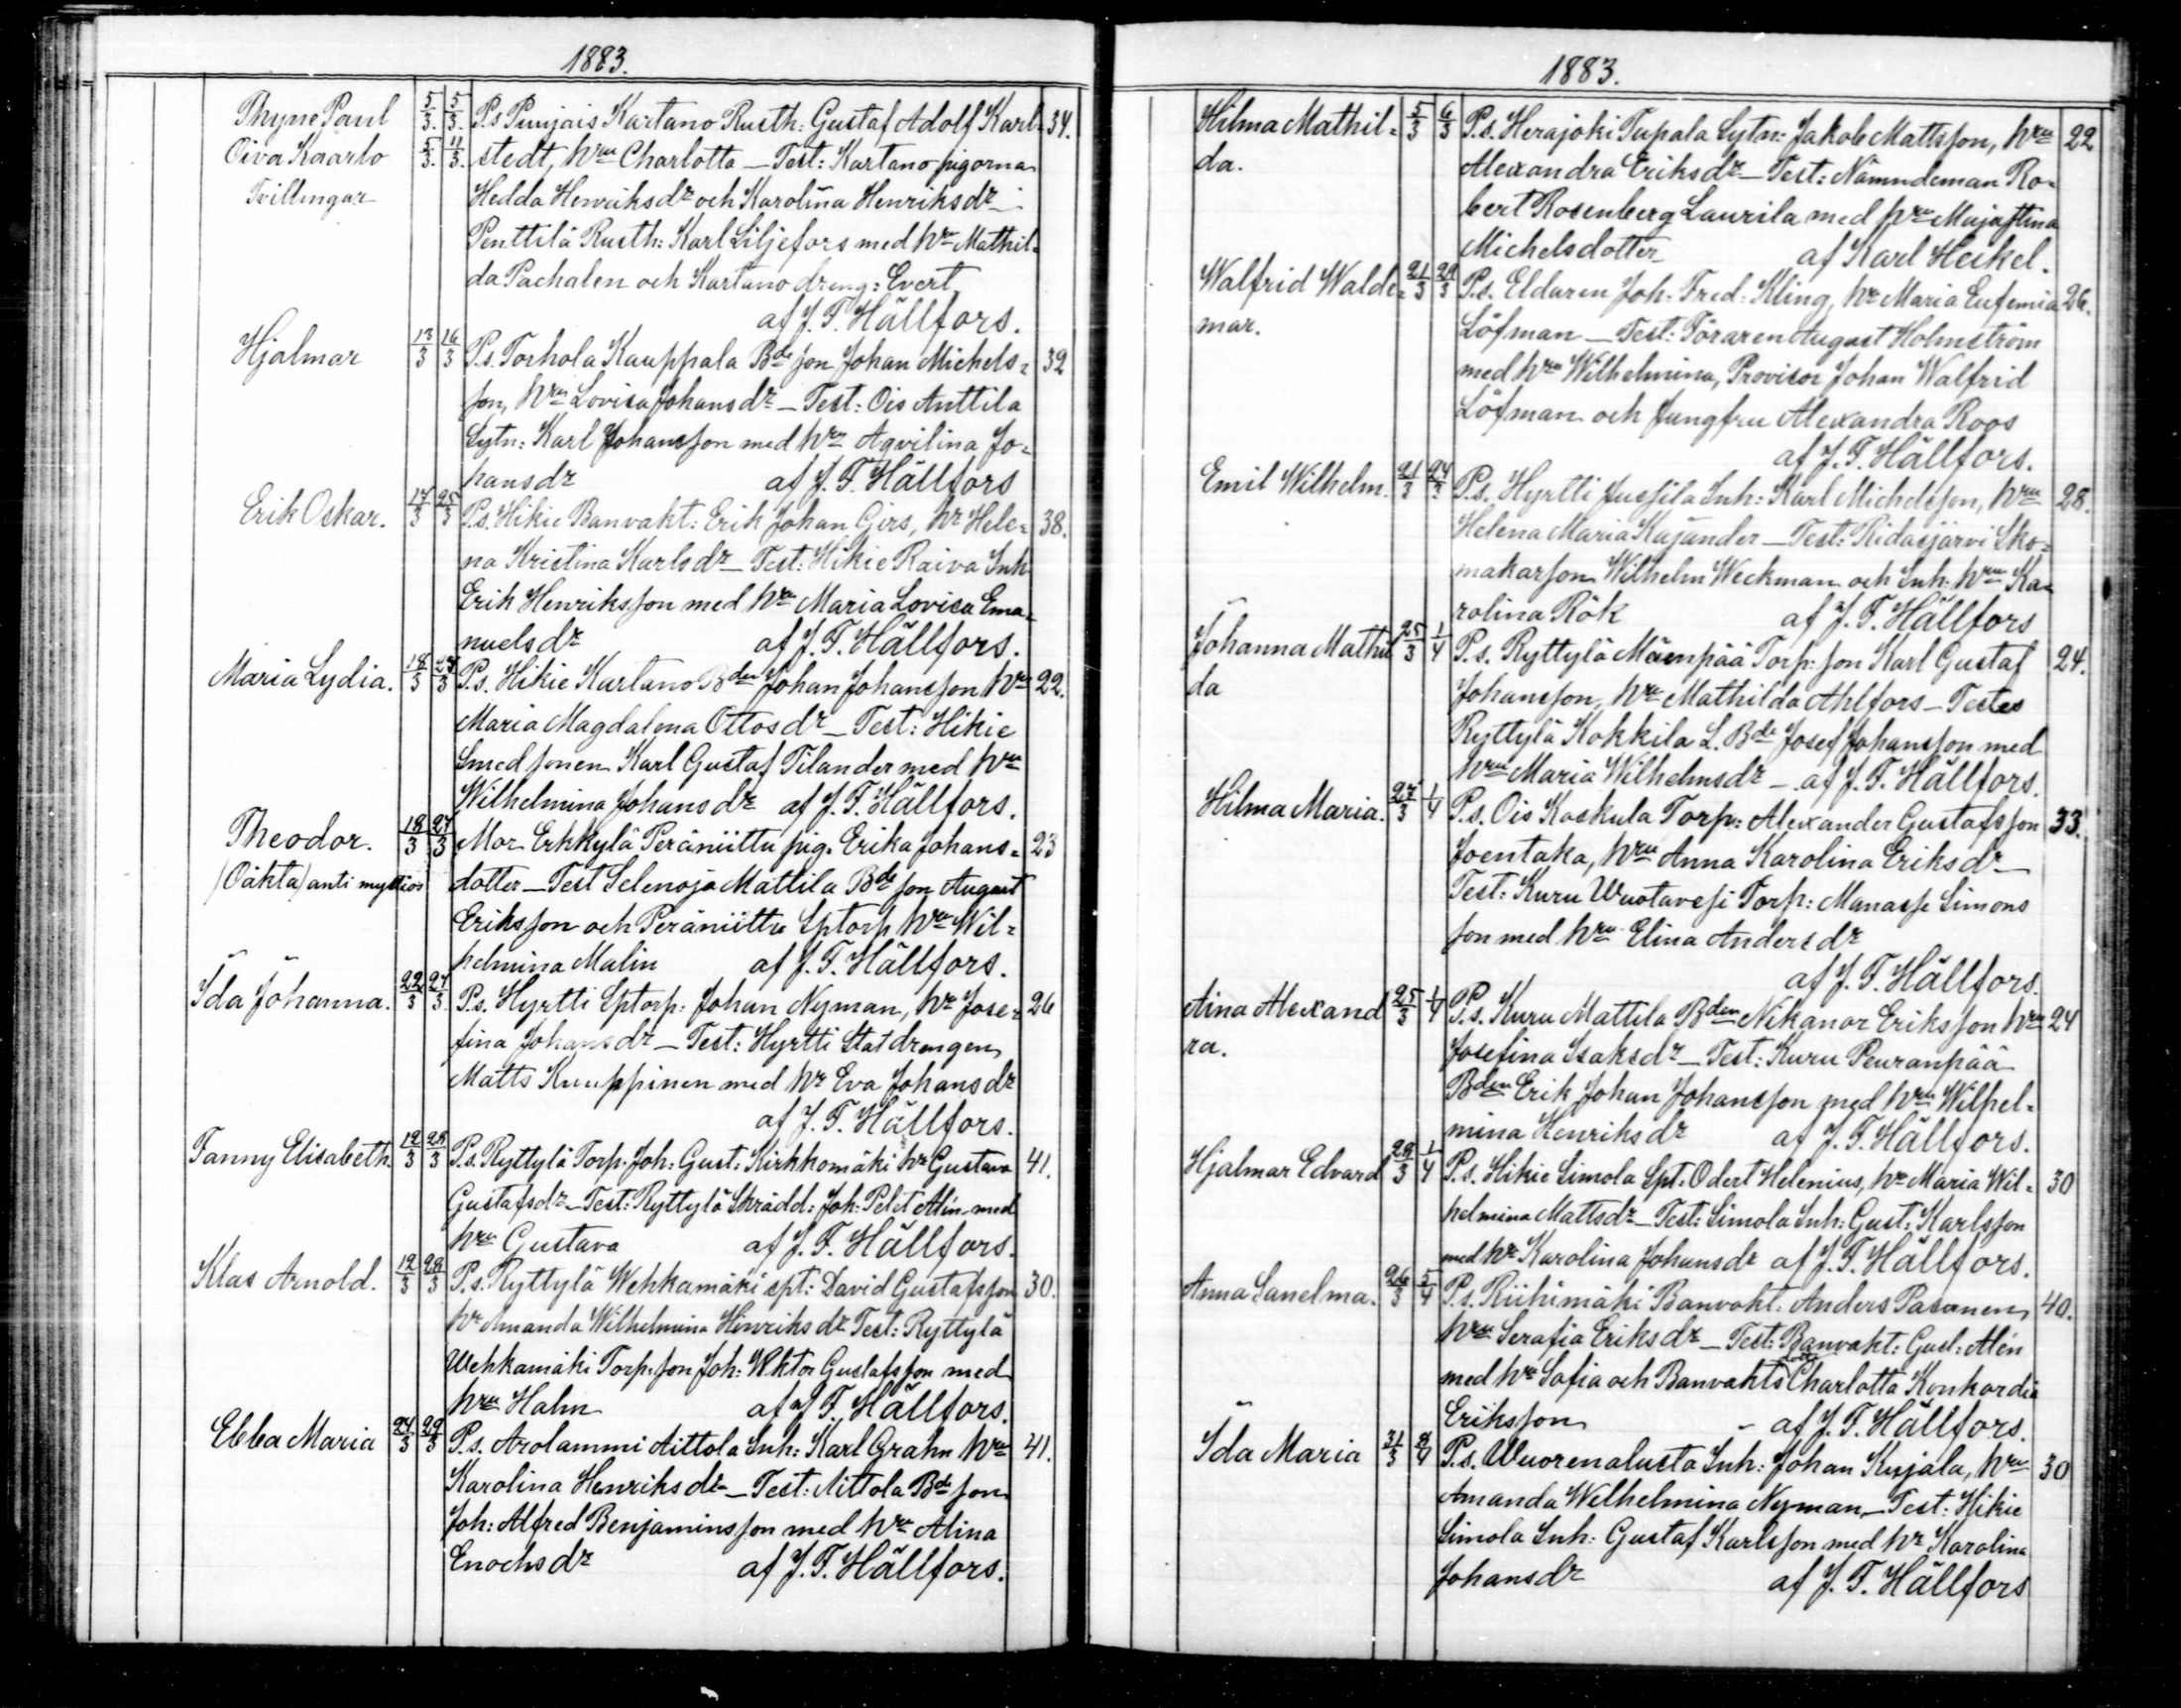 1883.
Thyne Paul 5/3. 5/3. P.s Punjais Kartano Rusth: Gustaf Adolf Karl- 34.
Oiva Kaarlo 5/3. 11/3. stedt, hru Charlotta — Test: Kartano pigorna
Tvillingar Hedda Henriksdr och Karolina Henriksdr
Penttilä Rusth: Karl Liljefors med hru Mathil-
da Pachalen och Kartano dreng: Evert
af J. F. Hällfors.
Hjalmar 13/3 16/3 P.s. Torhola Kauppala Bde son Johan Michels- 32
son, hru Lovisa Johansdr — Test: Ois Anttila
Sytn: Karl Johansson med hru Aqvilina Jo-
hansdr af J. F. Hällfors
Erik Oskar. 17/3 25/3 P.s. Hikie Banvakt: Erik Johan Girs, hr Hele- 38.
na Kristina Karlsdr — Test: Hikie Raiva Inh
Erik Henriksson med hru Maria Lovisa Ema-
nuelsdr af J. F. Hällfors.
Maria Lydia. 18/3 27/3 P.s. Hikie Kartano Bden Johan Johansson hru 22.
Maria Magdalena Ottosdr — Test: Hikie
Smedsonen Karl Gustaf Tilander med hru
Wilhelmina Johansdr af J. F. Hällfors.
Theodor. 18/3 27/3 Mor Erkkylä Peräniittu pig. Erika Johans- 23
(Oäkta) anti dotter — Test Selenoja Mattila Bde son August
Eriksson och Peräniittu Sptorp hru Wil-
helmina Malin af J. F. Hällfors.
Ida Johanna. 22/3 27/3. P.s. Hyrtti Sptorp: Johan Nyman, hr Jose- 26
fina Johansdr — Test: Hyrtti Statdrengen
Matts Kauppinen med hr Eva Johansdr
af J. F. Hällfors.
Fanny Elisabeth. 12/3 28/3 P.s. Ryttylä Torp. Joh: Gust: Kirkkomäki hr Gustava 41.
Gustafsdr — Test: Ryttylä Skrädd: Joh: Alén med
hru Gustava af J. F. Hällfors.
Klas Arnold. 12/3 28/3 P.s. Ryttylä Wehkamäki spt: David Gustafsson 30.
hr Amanda Wilhelmina Henriksdr Test: Ryttylä
Wehkamäki Torp. son Joh: Wiktor Gustafsson med
hru Hahn af J. F. Hällfors.
Ebba Maria 24/3 29/3 P.s. Arolammi Aittola Inh: Karl Grahn hru 41.
Karolina Henriksdr — Test: Aittola Bde son
Joh: Alfred Benjaminsson med hru Alina
Enochsdr af J. F. Hällfors.
1883.
Hilma Mathil- 5/3 6/3 P.s. Herajoki Tupala Sytn: Jakob Mattsson, hru 22
da. Alexandra Eriksdr — Test: Nämndeman Ro-
bert Rosenberg Laurila med hru Majastina
Michelsdotter af Karl Heikel.
Walfrid Walde- 21/3 29/3 P.s. Eldaren Joh. Fred: Kling, hr Maria Eufemia 26.
mar. Löfman — Test: Föraren August Holmström
med hru Wilhelmina, Provisor Johan Walfrid
Löfman och Jungfru Alexandra Roos
af J. F. Hällfors.
Emil Wilhelm. 21/3 24/3 P.s. Hyrtti Jussila Inh: Karl Michelsson, hru 28.
Helena Maria Kajander — Test: Ridasjärvi Sko-
makarson Wilhelm Weckman och Inh: hru Ka-
rolina Rök af J. F. Hällfors
Johanna Mathil 25/3 1/4 P.s. Ryttylä Mäenpää Torp: son Karl Gustaf 24.
da Johansson, hru Mathilda Ahlfors — Testes
Ryttylä Kokkila L. Bde Josef Johansson med
hru Maria Wilhelmsdr — af J. F. Hällfors.
Hilma Maria. 27/3 1/4 P.s. Ois Koskula Torp: Alexander Gustafsson 33.
Joentaka, hru Anna Karolina Eriksdr —
Test: Kuru Wuotavesi Torp: Manasse Simons
son med hru Elina Andersdr
af J. F. Hällfors.
Aina Alexand 25/3 1/4 P.s. Kuru Mattila Bden Nikanor Eriksson hru 24
ra. Josefina Isaksdr — Test: Kuru Peuranpää
Bden Erik Johan Johansson med hru Wilhel-
mina Henriksdr af J. F. Hällfors.
Hjalmar Edvard 29/3 1/4 P.s. Hikie Simola Spt. Odert Helenius, hr Maria Wil- 30
helmina Mattsdr — Test: Simola Inh: Gust: Karlsson
med hr Karolina Johansdr af J. F. Hällfors.
Anna Sanelma. 26/3 5/4 P.s. Riihimäki Banvakt: Anders Pasanen, 40.
hru Serafia Eriksdr — Test: Banvakt: Gust: Alén
med hru Sofia och Banvakts dott Charlotta Konkordia
Eriksson — af J. F. Hällfors.
Ida Maria 31/3 8/4 P.s. Wuorenalusta Inh: Johan Kujala, hru 30
Amanda Wilhelmina Nyman — Test: Hikie
Simola Inh: Gustaf Karlsson med hr Karolina
Johansdr af J. F. Hällfors